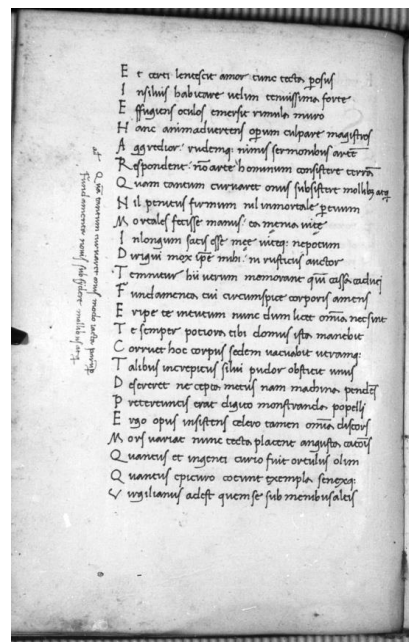 Et cepti lentescit amor tunc tecta ꝑosus
In siluis habitare uelim tenuissima forte
Effugiens oculos emersit rimula muro
Hanc animaduertens oꝑum culpare magistros
Aggredior rudemq; nimis sermonibus artē
Respondent nō arte hominum consistere terrā
Quam tantum curuaret onus subsistere mollibꝫ atq;
Nil penitus firmum nil inmortale ꝑ euum
Mortales fecisse manus ea menia uite
In longum satis esse mee uiteq; nepotum
Dirigui mox ip̄e mihi rusticus auctor
Temnitur hii uerum memorant cassa caduci
Fundamenta tui circumspice corporis amens
Eripe te in tutum nunc dum licet om̄ia nec sint
Te semper potiora tibi domus ista manebit
Corruet hoc corpus sedem uacuabit utramq;
Talibus increpitus silui pudor obstitit unus
Desereret ne cepta metus nam machina pendēs
Pretereuntis erat digito monstranda popelli
Ergo opus insistens celero tamen om̄ia discors
Mors uariat nunc tecta placent angusta catōis
Quantus et ingenti curio fuit ortulus olim
Quantus epicuro coeunt exempla senexq;
Virgilianus adest quem se sub menibus altis
at
Quā tantum curuaret onus modo iacta
fundamenta noui subsident mollibus atq;